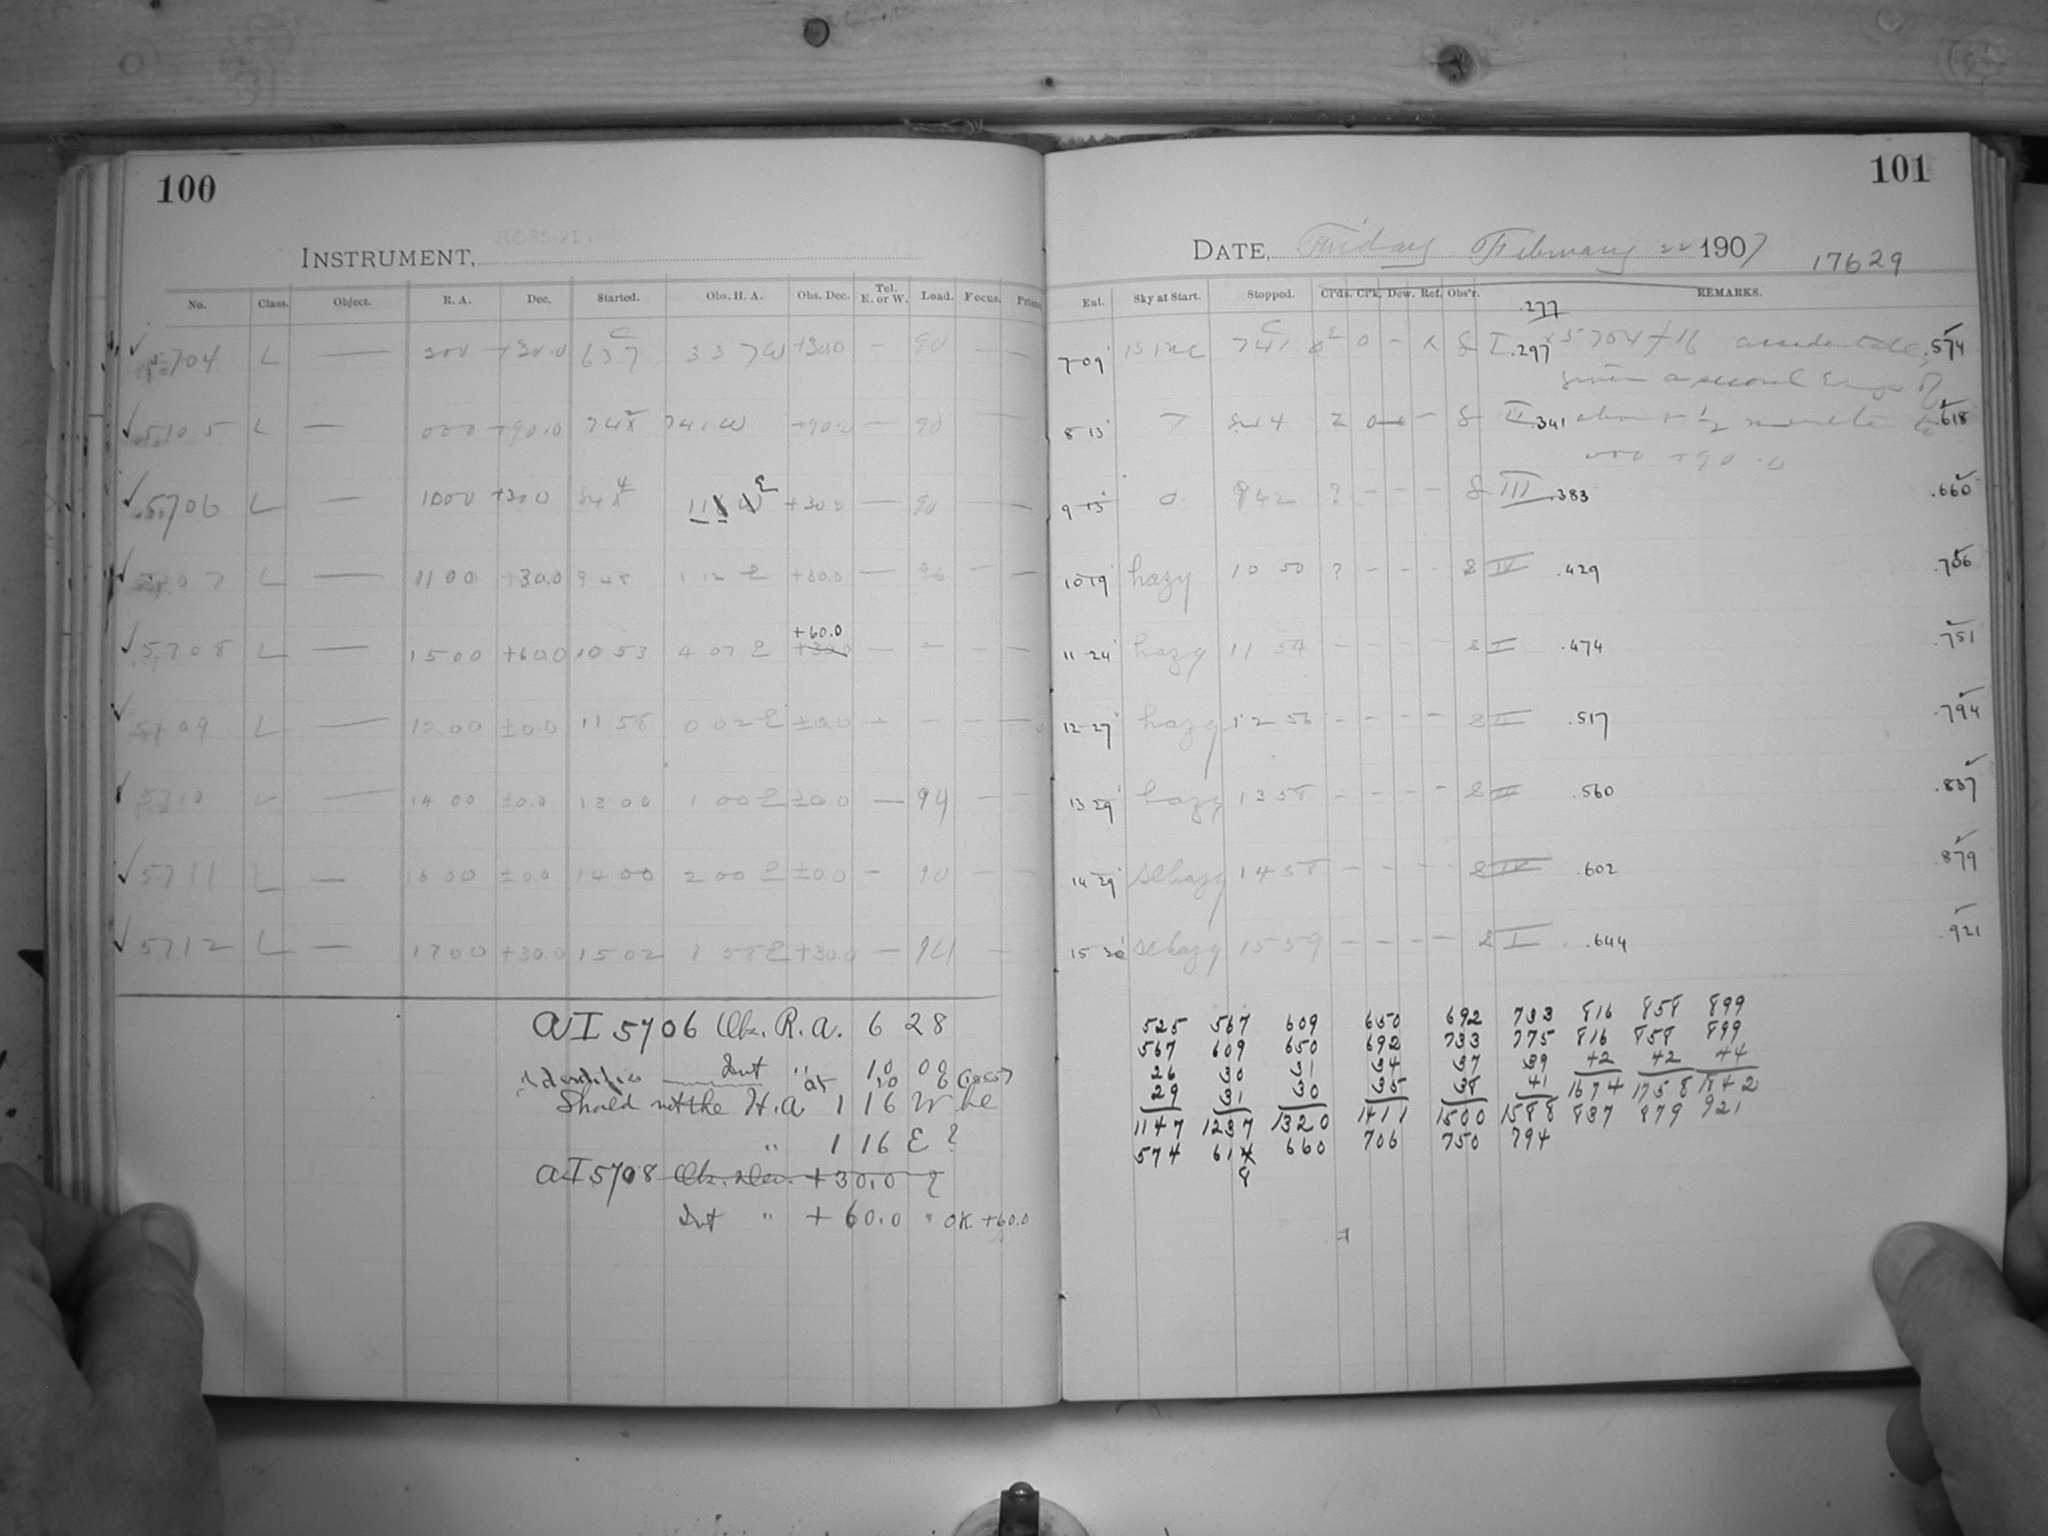 100
INSTRUMENT,
No. Class. Object. R. A. Dec. Started. Obs. H. A. Obs. Dec. Tel. E. or W. Load. Focus. Prism
5704 L — 300 +30.0 637 337W +30.0 — 90 —
5705 L — 000 +90.0 742 741W +90.0 — 90 —
5706 L — 1000 +30.0 +30.0 — 90 —
5707 L — 1100 +30.0 9 45 1 12 E +30.0 — 96 — —
+60.0
5708 L — 1500 +60.0 10 53 4 07 E +30.0 — — — —
5709 L — 1200 ±0.0 11 58 0 02 E ±0.0 — — — —
5710 L — 1400 ±0.0 1300 1 00 E ±0.0 — 94 — —
5711 L — 1600 ±0.0 1400 2 00 E ±0.0 — 90 — —
5712 L — 1700 +30.0 1502 1 58 E +30.0 — 94 —
AI 5706 Obs. R.A. 6 28
Int " 10 00
Identifies at 10 0
Should not the H.A 1 16 W be
" 1 16 E ?
AI 5708 Obs. Dec. +30.0 ?
Int " +60.0 " OK. +60.0
101
DATE, Friday February 22 1907 17629
Ext. Sky at Start. Stopped. Cl'ds. C'pk. Dew. Ref. Obs'r. REMARKS.
.277
7 09 741 0 — S I .297 5704 accidentally .574
given a second
8 13 7 2 0 — — S II .341 about 1/2 minute to .618
+90.0
9 13 0 942 ? — — — S III .383 .660
10 19 hazy 10 50 ? — — — S IV .429 .706
11 24 hazy 11 54 — — — S I .474 .751
12 27 hazy 12 56 — — — — S II .517 .794
13 29 hazy 13 58 — — — — S III .560 .837
14 29 slhazy 14 58 — — — — S IV .602 .879
15 30 slhazy 15 59 — — — — S I .644 .921
525 567 609 650 692 733 816 858 899
567 609 650 692 733 775 816 858 899
26 30 31 34 37 39 42 42 44
29 31 30 35 38 41 1674 1758 1842
1147 1237 1320 1411 1500 1588 837 879 921
574 614 660 706 750 794
8